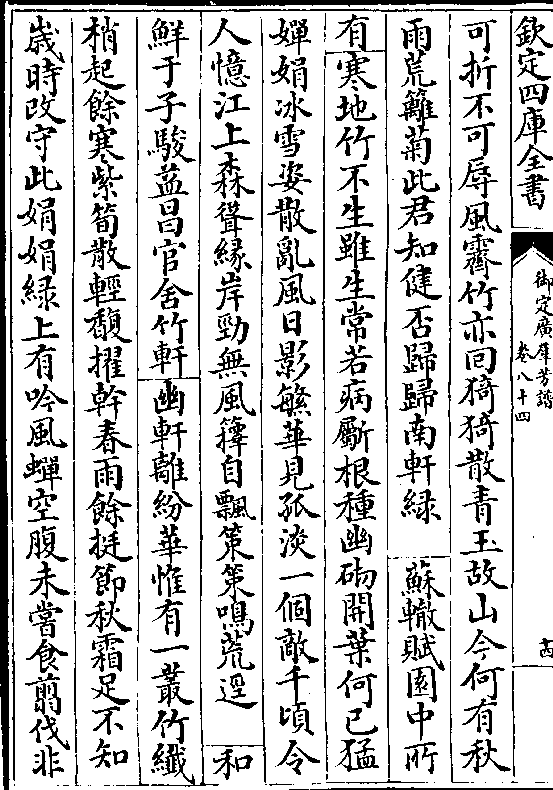 欽定四庫全書
御定廣羣芳譜
卷八十四
茜
可折不可辱風霽竹亦囘猗猗散青玉故山今何有秋
雨荒籬菊此君知健否歸歸南軒緑 蘇轍賦園中所
有 寒地竹不生雖生常若病斸根種幽砌開葉何已猛
嬋娟冰雪姿散亂風日影繁華見孤淡一個敵千頃令
人憶江上森聳緣岸勁無風籜自飄策策鳴荒逕 和
鮮于子駿益昌官舍竹軒 幽軒離紛華惟有一叢竹纖
梢起餘寒紫筍散輕馥擢幹春雨餘挺節秋霜足不知
歳時改守此娟娟緑上有吟風蟬空腹未嘗食翦伐非